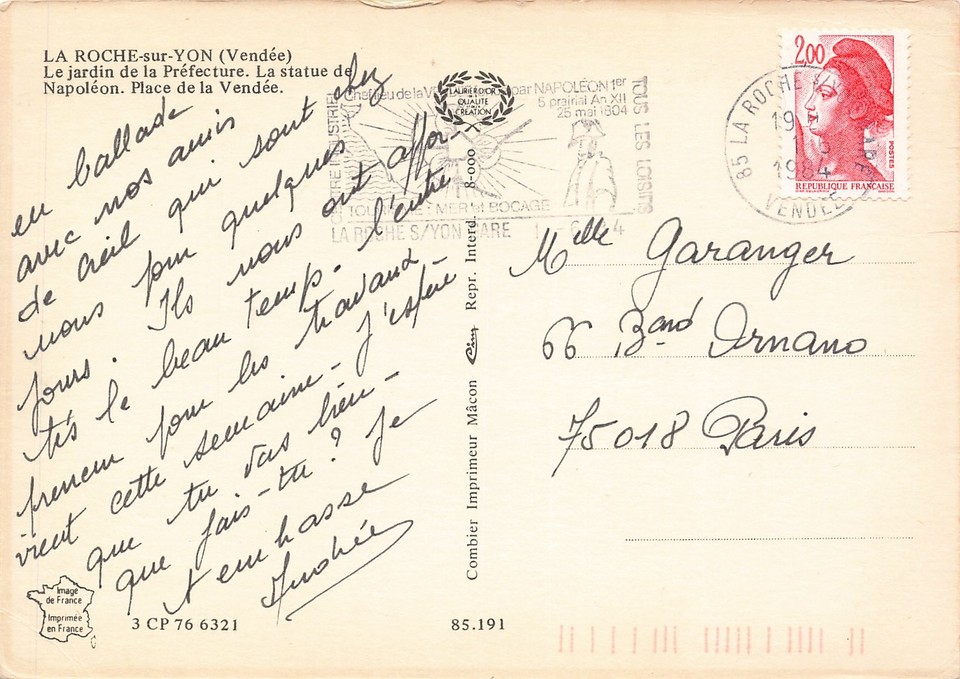 LA ROCHE-sur-YON (Vendée)
Le jardin de la Préfecture. La statue de
Napoléon. Place de la Vendée.
en ballade
avec nos amis
de Creil qui sont chez
nous pour quelques
jours. Ils nous ont appor-
tés le beau temps. l'entre
preneur pour les travaux
vient cette semaine - J'espère
que tu vas bien -
que fais-tu? Je
t'embrasse
Andrée
Image
de France
Imprimée
en France
3 CP 76 6321
85.191
Combier Imprimeur Mâcon Cim Repr. Interd. 8-000
LAURIER D'OR
DE LA
QUALITÉ
CRÉATION
Chef lieu de la par NAPOLÉON 1er
5 prairial An XII
25 mai 1804
TOUS LES LOISIRS
MER et BOCAGE
LA ROCHE S/YON GARE
85 LA ROCHE S/
19
1984
VENDEE
2,00
POSTES
REPUBLIQUE FRANCAISE
Melle Garanger
66 Bard Ornano
75018 Paris